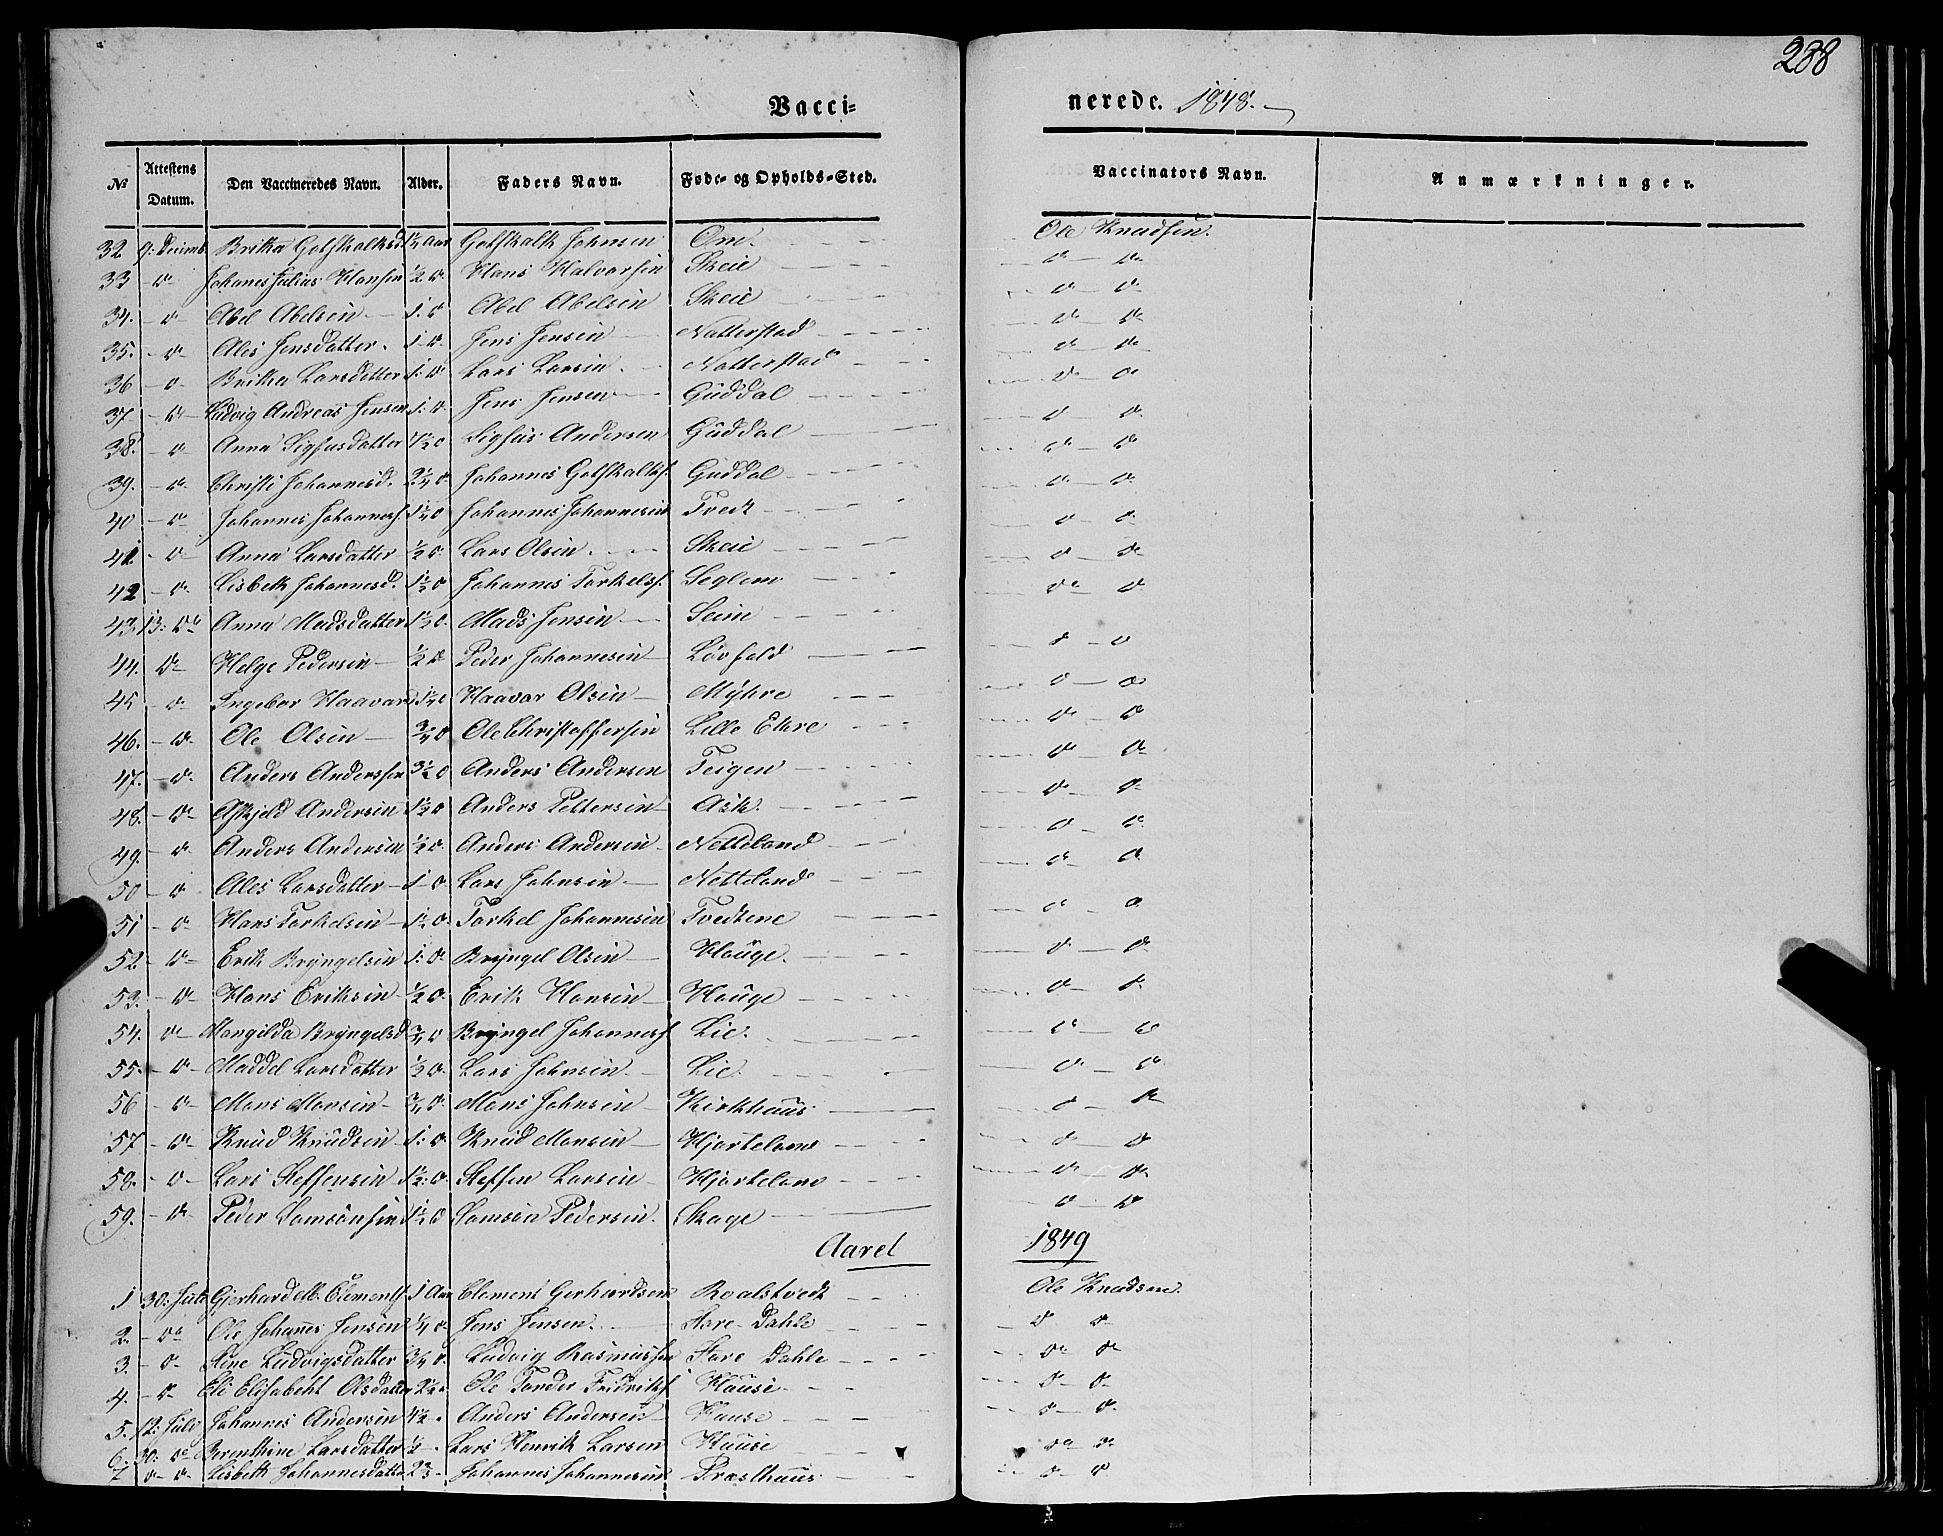 238
Vacci- nerede. 1848.
№ Attestens Datum. Den Vaccineredes Navn. Alder. Faders Navn. Føde- og Opholds-Sted. Vaccinators Navn. Anmærkninger.
32 9: Decemb. Britha Gotskalksd. 1½ Aar Gotskalk Johnsen Om. Ole Knudsen.
33 - d° Johanes Julius Hansen ½ d° Hans Halvorsen Skeie d° - d°
34. - d° Abel Abelsen 1: d° Abel Abelsen Skeie d° - d°
35. - d° Ales Jensdatter. 1 - d° Jens Jensen Natterstad d° - d°
36 - d° Britha Larsdatter 1: d° Lars Larsen. Natterstad d° - d°
37. - d° Ludvig Andreas Jensen 1: d° Jens Jensen Guddal d° - d°
38. - d° Anna Sigfusdatter 1½ d° Sigfus Andersen Guddal d° - d°
39. - d° Christi Johannesd. d° Johannes Gotskalks. Guddal d° - d°
40 - d° Johannes Johanness. d° Johannes Johannesen Tvedt d° - d°
41 - d° Anna Larsdatter ½ d° Lars Olsen. Skeie d° - d°
42 - d° Lisbeth Johannesd. 1½ d° Johannes Torkelss. Seglem d° - d°
43 13: d° Anna Madsdatter 1½ d° Mads Jensen Seim d° - d°
44. d° Helge Pedersen ½ d° Peder Johannesen Løvfald d° - d°
45 - d° Ingebor Haavard d° Haavar Olsen Myhre d° - d°
46. - d° Ole Olsen ¾ d° Ole Christoffersen Lille Ekre d° - d°
47. - d° Anders Anderssen 3½ d° Anders Andersen Teigen d° - d°
48. - d° Askjeld Andersen 1½ d° Anders Pettersen Ask. d° - d°
49. - d° Anders Andersen ½ d° Anders Andersen Netteland d° - d°
50 - d° Ales Larsdatter 1 - d° Lars Johnsen Netteland d° - d°
51 - d° Hans Torkelsen d° Torkel Johannesen Tvedtene d° - d°
52 - d° Erik Bryngelsen 1: d° Bryngel Olsen Hauge. d° - d°
53. - d° Hans Eriksen ½ d° Erik Hansen Hauge d° - d°
54. d° Mangilda Bryngelsd ¾ d° Bryngel Johanness. Lie. d° - d°
55. - d° Maddel Larsdatter ½ d° Lars Johnsen Lie. d° - d°
56 - d° Mons Monsen ¾ d° Mons Johnsen Kirkhuus d° - d°
57 - d° Knud Knudsen 1: d° Knud Monsen Hjorteland d° - d°
58. - d° Lars Steffensen 1½ d° Steffen Larsen Hjorteland d° - d°
59. - d° Peder Samsonsen 1½ d° Samson Pedersen. Skage d° - d°
Aaret 1849
1 30: Juli Gjerhard M. Clements 1 Aar Clement Gerhardsen Roalstvedt Ole Knudsen.
2. - d° Ole Johanes Jensen ¼ d° Jens Jensen. Fare - Dahle d° d°
3. - d° Stine Ludvigsdatter ¾ d° Ludvig Rasmussen Fare Dahle d° d°
4. - d° Eli Elisabeht Olsdatter Ole Tonder Fridriks. Huuse d° - d°
5. 12: July Johannes Andersen 4½ - Anders Andersen Huuse d° - d°
6. 30: d° Berenthine Larsdatter ½ - Lars Henrik Larsen Huuse d° - d°
7 d° - d° Lisbeth Johannesdatter Johannes Johannesen Præsthuus d° - d°